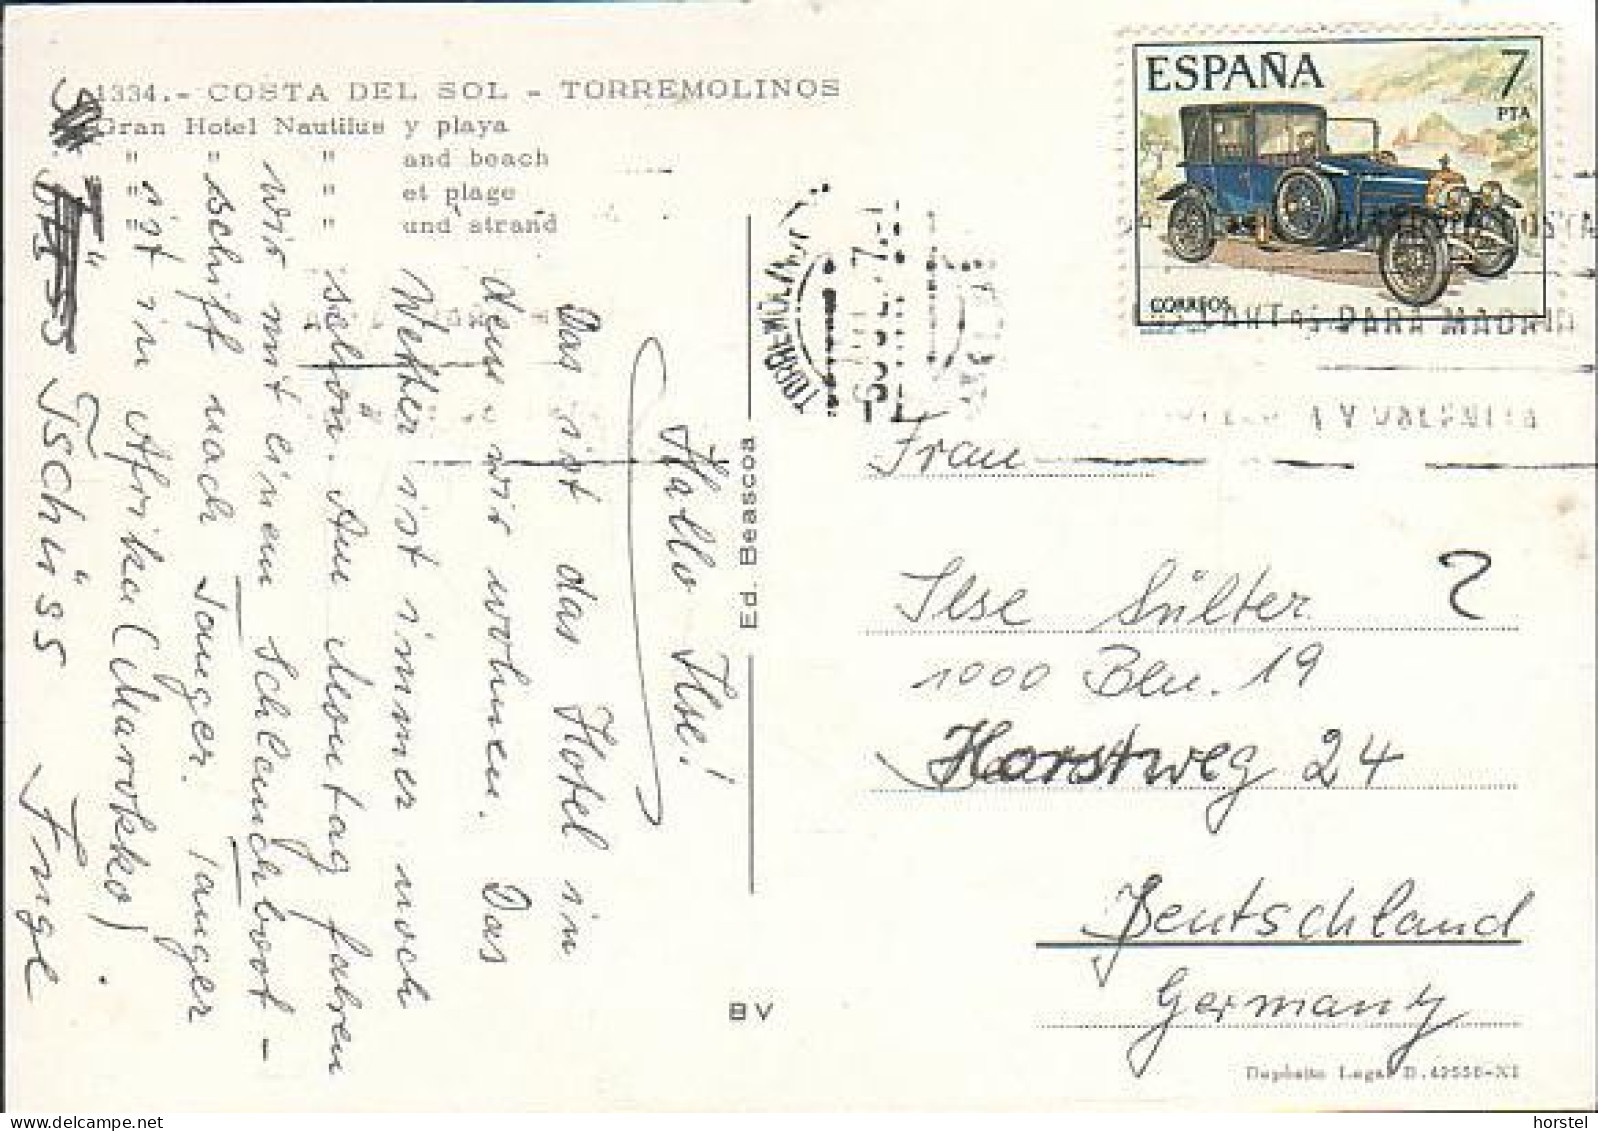 1334.- COSTA DEL SOL - TORREMOLINOS
Gran Hotel Nautilus y playa
" " " and beach
" " " et plage
" " " und strand
Hallo Ilse!
Das ist das Hotel in
dem wir wohnen. Das
Wetter ist immer noch
schön. Am Montag fahren
wir mit einem Schlauchboot-
schiff nach Tanger. Tanger
ist in Afrika (Marokko)
Tschüss Inge
Ed. Beascoa
BV
ESPAÑA 7
PTA
CORREOS
TORREMOLINOS
PARA MADRID
A V VALENCIA
Frau
Ilse Sülter
1000 Bln. 19
Horstweg 24
Deutschland
Germany
Depósito Legal B. 42556-XI
horstel